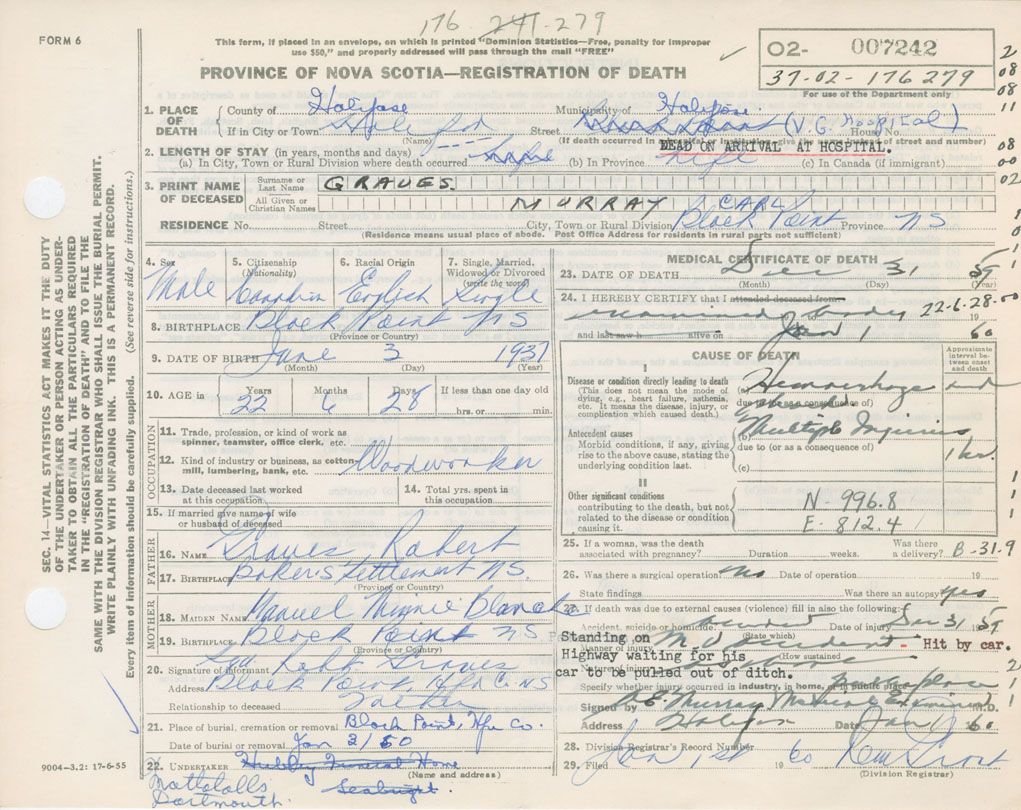 176 - 241-279
FORM 6
This form, if placed in an envelope, on which is printed "Dominion Statistics—Free, penalty for improper
use $50," and properly addressed will pass through the mail "FREE"
O2- 007242
37-02-176279
For use of the Department only
PROVINCE OF NOVA SCOTIA—REGISTRATION OF DEATH
2
08
08
11
08
00
02
1. PLACE OF DEATH County of Halifax Municipality of Halifax
If in City or Town Street (V.G. Hospital) House No.
(Name) (If death occurred in hospital or institution give instead of street and number)
DEAD ON ARRIVAL AT HOSPITAL.
2. LENGTH OF STAY (in years, months and days)
(a) In City, Town or Rural Division where death occurred (b) In Province Life (c) In Canada (if immigrant)
3. PRINT NAME OF DECEASED
Surname or Last Name GRAVES.
All Given or Christian Names MURRAY CARL
RESIDENCE No. Street City, Town or Rural Division Black Point Province NS
(Residence means usual place of abode. Post Office Address for residents in rural parts not sufficient)
SEC. 14—VITAL STATISTICS ACT MAKES IT THE DUTY
OF THE UNDERTAKER OR PERSON ACTING AS UNDER-
TAKER TO OBTAIN ALL THE PARTICULARS REQUIRED
IN THE "REGISTRATION OF DEATH" AND TO FILE THE
SAME WITH THE DIVISION REGISTRAR WHO SHALL ISSUE THE BURIAL PERMIT.
WRITE PLAINLY WITH UNFADING INK. THIS IS A PERMANENT RECORD.
Every item of information should be carefully supplied. (See reverse side for instructions.)
4. Sex 5. Citizenship (Nationality) 6. Racial Origin 7. Single, Married, Widowed or Divorced (write the word)
Male Canadian English Single
8. BIRTHPLACE Black Point NS
(Province or Country)
9. DATE OF BIRTH June 3 1937
(Month) (Day) (Year)
10. AGE in Years Months Days If less than one day old
22 6 28 hrs. or min.
OCCUPATION
11. Trade, profession, or kind of work as
spinner, teamster, office clerk, etc.
12. Kind of industry or business, as cotton-
mill, lumbering, bank, etc. Woodworker
13. Date deceased last worked at this occupation
14. Total yrs. spent in this occupation
15. If married give name of wife
or husband of deceased
FATHER
16. NAME Graves, Robert
17. BIRTHPLACE Bakers Settlement NS.
(Province or Country)
MOTHER
18. MAIDEN NAME Manuel Minnie Blanche
19. BIRTHPLACE Black Point NS
(Province or Country)
20. Signature of informant Robt Graves
Address Black Point, Hfx Co. NS
Relationship to deceased Father
21. Place of burial, cremation or removal Black Point, Hfx Co.
Date of burial or removal Jan 3/60
22. UNDERTAKER Hubley Funeral Home
(Name and address)
Seabright.
Mattatalls
Dartmouth.
9004-3.2: 17-6-55
MEDICAL CERTIFICATE OF DEATH
23. DATE OF DEATH Dec 31 59
(Month) (Day) (Year)
24. I HEREBY CERTIFY that I attended deceased from
examined body 22-6-28-00
19
and last saw h alive on Jan 1 60
CAUSE OF DEATH
Approximate interval between onset and death
I
Disease or condition directly leading to death
(This does not mean the mode of
dying, e.g., heart failure, asthenia,
etc. It means the disease, injury, or
complication which caused death.)
(a) Hemorrhage and
due to (or as a consequence of)
Shock
Antecedent causes
Morbid conditions, if any, giving
rise to the above cause, stating the
underlying condition last.
(b) Multiple Injuries
due to (or as a consequence of)
1 hr.
(c)
II
Other significant conditions
contributing to the death, but not
related to the disease or condition
causing it.
N-996.8
E-812.4
25. If a woman, was the death Was there
associated with pregnancy? Duration weeks. a delivery? B-31.9
26. Was there a surgical operation? No Date of operation 19
State findings Was there an autopsy? Yes
27. If death was due to external causes (violence) fill in also the following:
Accident, suicide or homicide? Accident Date of injury Dec 31 1959
(State which)
Manner of injury M V accident - Hit by car.
(How sustained)
Nature of injury
Standing on
Highway waiting for his
car to be pulled out of ditch.
Specify whether injury occurred in industry, in home, or in public place public place
Signed by Murray Medical Examiner M.D.
Address Halifax Date Jan 1/60
28. Division Registrar's Record Number
29. Filed Jan 1st 19 60
(Division Registrar)